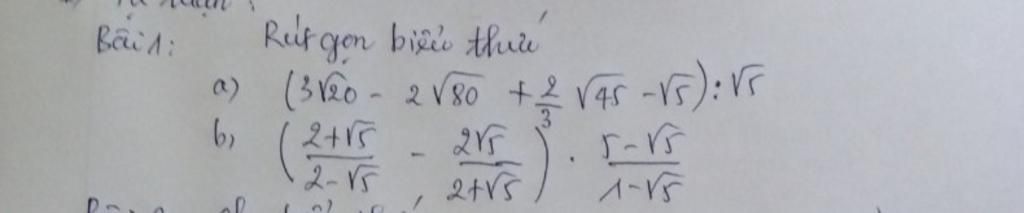 Bài 1: Rút gọn biểu thức
a) (3√20 - 2√80 + 2/3 √45 - √5) : √5
b) ( (2+√5)/(2-√5) - 2√5/(2+√5) ) . (5-√5)/(1-√5)